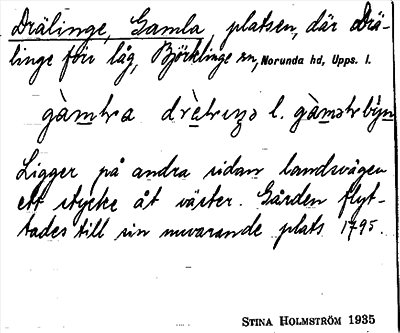 Drälinge, Gamla, platsen, där Drä-
linge förr låg, Björklinge sn, Norunda hd, Upps. l.
l.
Ligger på andra sidan landsvägen
ett stycke åt väster. Gården flyt-
tades till sin nuvarande plats 1795.
STINA HOLMSTRÖM 1935